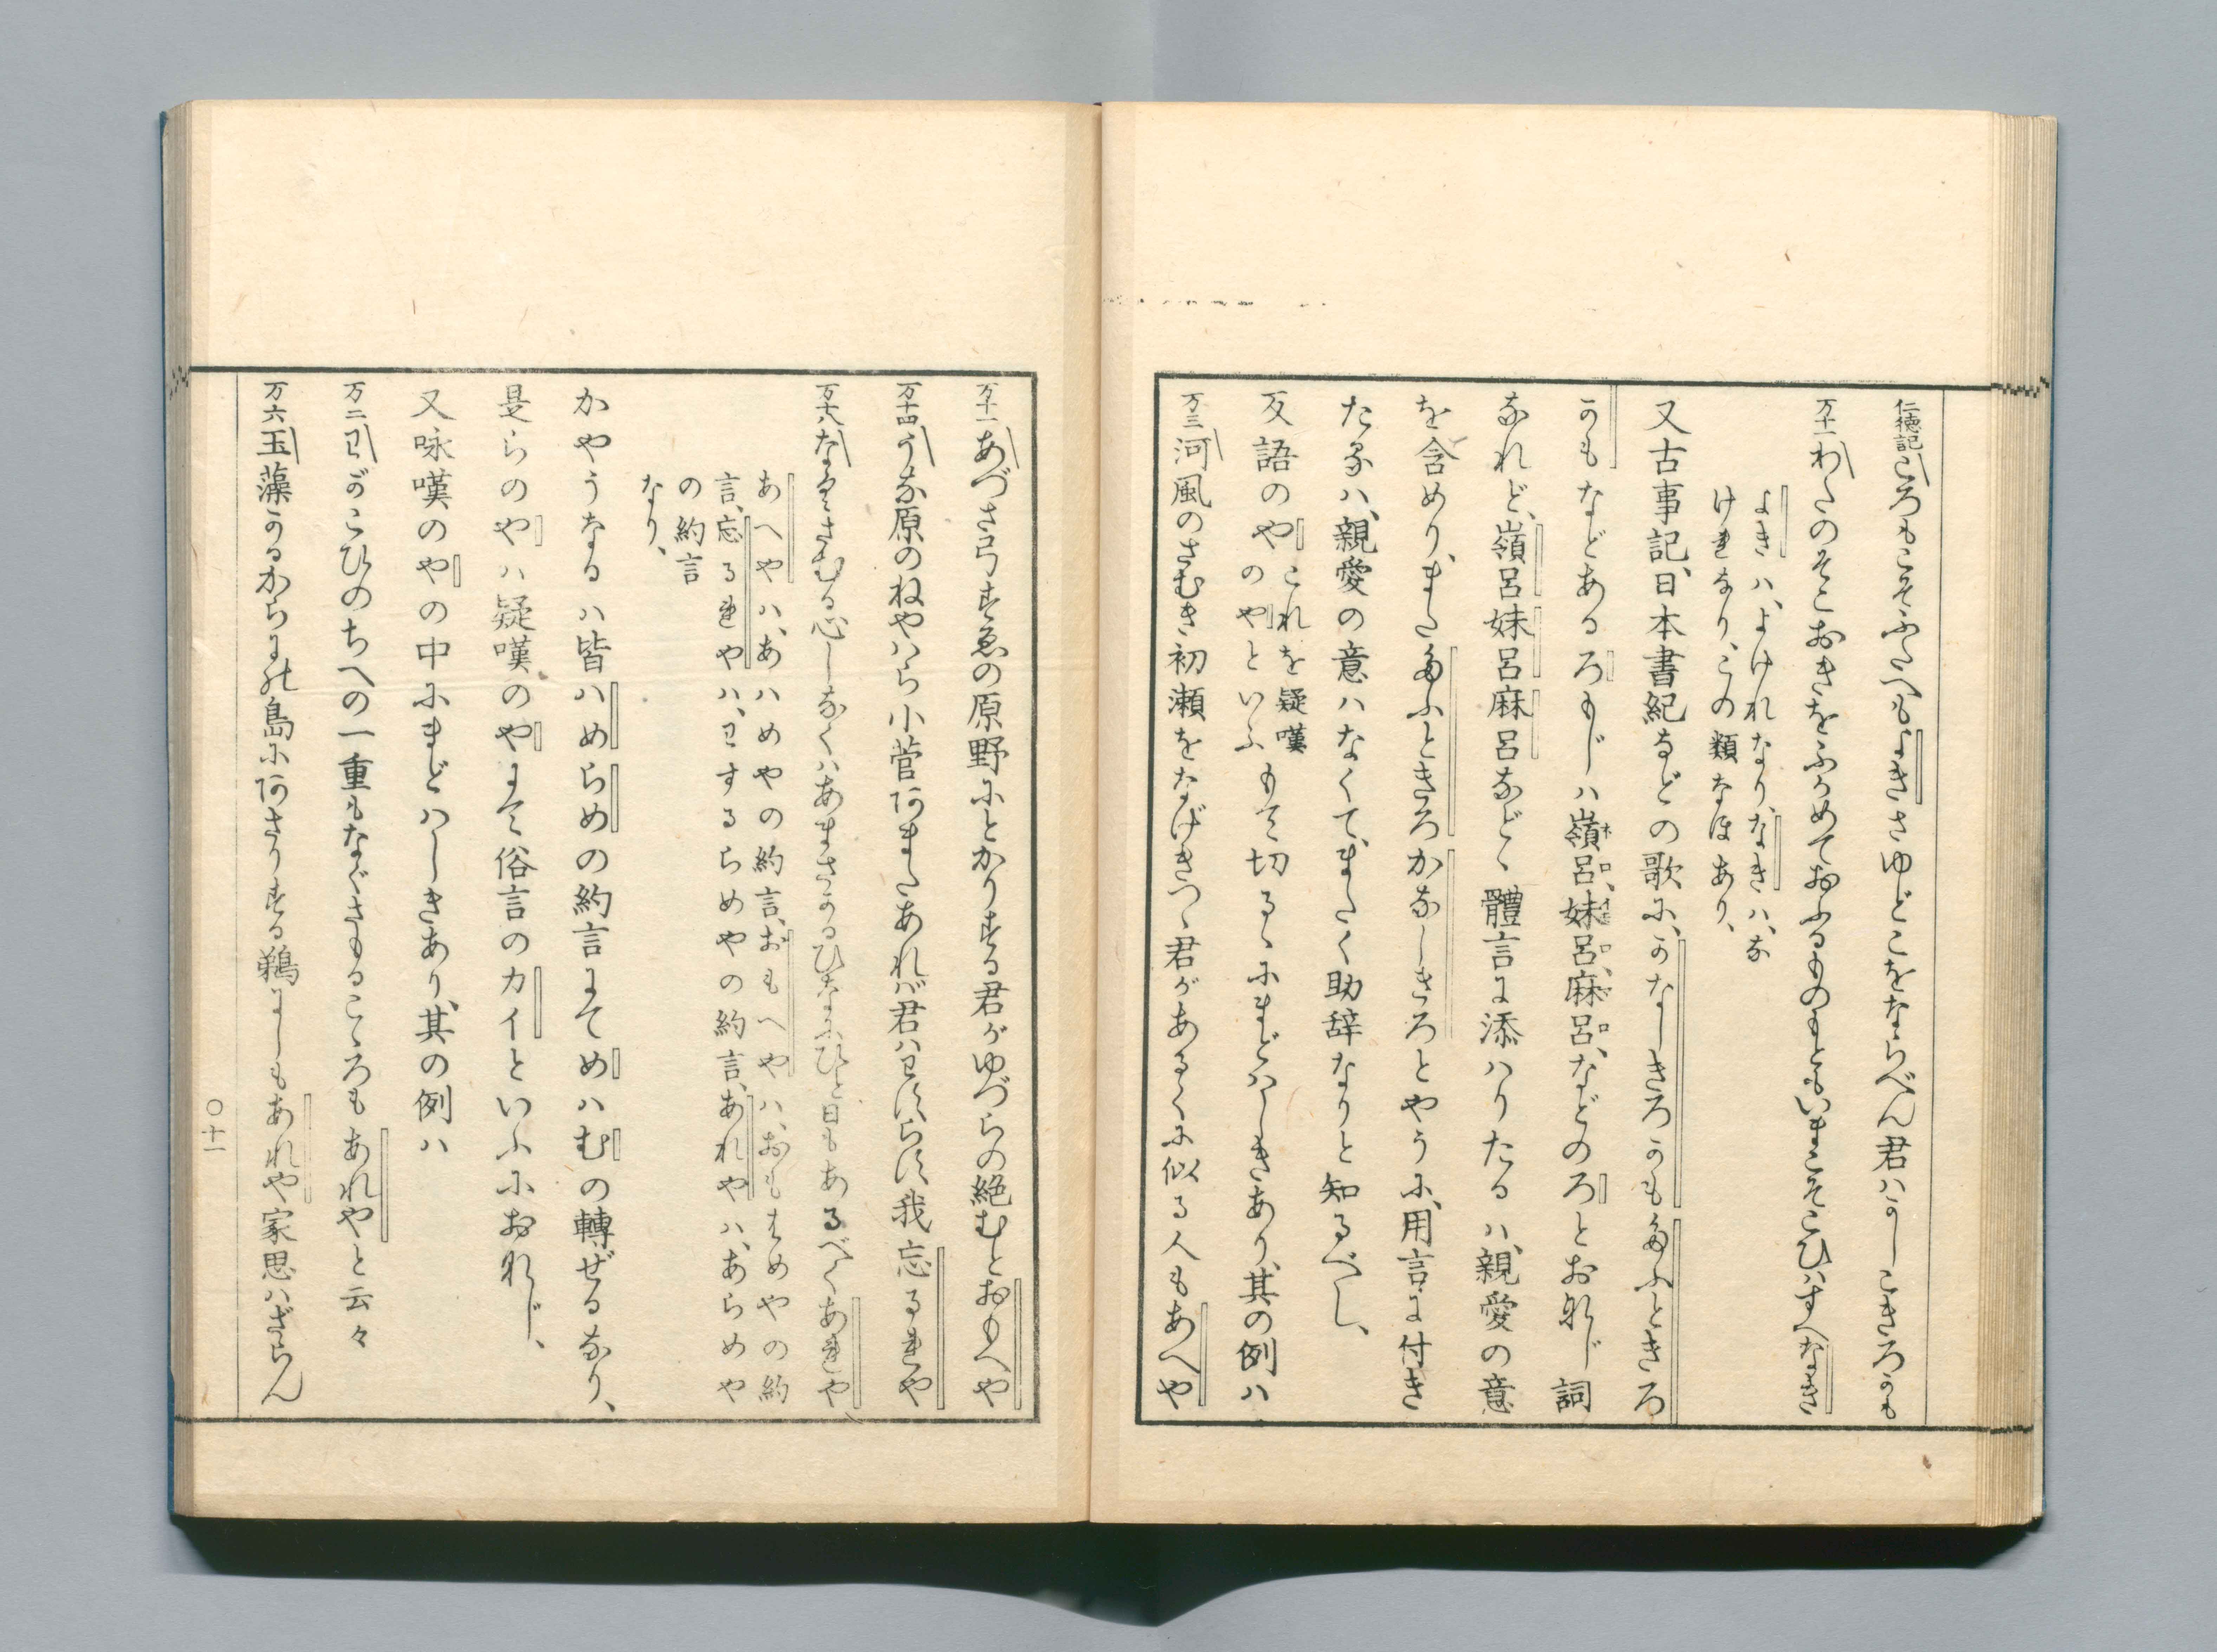 仁徳記ころもこそふたへもよきさゆどこをならべん君ハかしこきろかも
万十一わたのそこおきをふかめておふるものもともいまこそこひハすべなき
よきハ、よけれなり、なきハ、な
けれなり、この類なほあり、
又古事記、日本書紀などの歌に、かなしきろかもたふときろ
かもなどあるろもじハ嶺呂、妹呂、麻呂、などのろとおなじ詞
なれど、嶺呂妹呂麻呂などゝ體言に添ハりたるハ、親愛の意
を含めり、またたふときろかなしきろとやうに、用言に付き
たるハ、親愛の意ハなくて、またく助辞なりと知るべし、
反語のやこれを疑嘆
のやといふもて切るゝにまどハしきあり、其の例ハ
万三河風のさむき初瀬をなげきつゝ君があるくに似る人もあへや
万十一あづさ弓すゑの原野にとかりする君がゆづらの絶むとおもへや
万十四うな原のねやハら小菅あまたあれば君ハわすらす我忘るれや
万十八なぐさむる心しなくハあまさかるひなにひと日もあるべくあれや
あへやハ、あハめやの約言、おもへやハ、おもはめやの約
言、忘るれやハ、わするらめやの約言、あれやハ、あらめや
の約言
なり、
かやうなるハ皆ハめらめの約言にてめハむの轉ぜるなり、
是らのやハ疑嘆のやにて俗言のカイといふにおなじ、
又咏嘆のやの中にまどハしきあり、其の例ハ
万二わがこひのちへの一重もなぐさもるこゝろもあれやと云々
万六玉藻かるからにの島にあさりする鵜にしもあれや家思ハざらん
〇十一